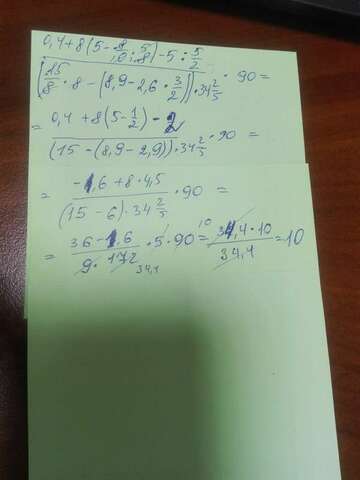 0,4+8(5-0,8·5/8)-5:5/2
(15/8·8-(8,9-2,6·3/2))·34 2/5 ·90=
= 0,4+8(5-1/2)-2
(15-(8,9-2,9))·34 2/5 ·90 =
= -1,6+8·4,5
(15-6)·34 2/5 ·90 =
= 36-1,6
9·172 ·5·90= 34,4·10
34,4 =10